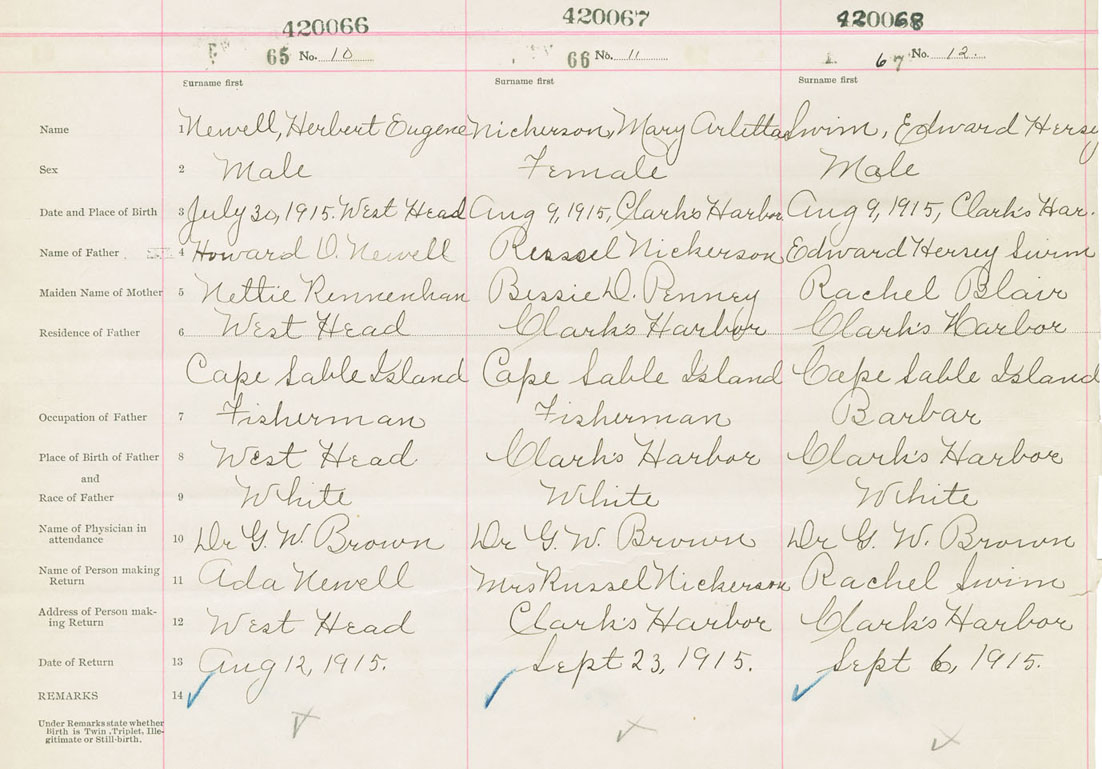 420066 420067 420068
65 No. 10 66 No. 11 67 No. 12.
Surname first Surname first Surname first
Name 1 Newell, Herbert Eugene Nickerson, Mary Arletta Swim, Edward Hersey
Sex 2 Male Female Male
Date and Place of Birth 3 July 30, 1915. West Head Aug 9, 1915, Clark's Harbor Aug 9, 1915, Clark's Har.
Name of Father 4 Howard D. Newell Russel Nickerson Edward Hersey Swim
Maiden Name of Mother 5 Nettie Bessie D. Penney Rachel Blair
Residence of Father 6 West Head Clark's Harbor Clark's Harbor
Cape Sable Island Cape Sable Island Cape Sable Island
Occupation of Father 7 Fisherman Fisherman Barbar
Place of Birth of Father 8 West Head Clark's Harbor Clark's Harbor
and
Race of Father 9 White White White
Name of Physician in
attendance 10 Dr G. W. Brown Dr G. W. Brown Dr G. W. Brown
Name of Person making
Return 11 Ada Newell Mrs Russel Nickerson Rachel Swim
Address of Person mak-
ing Return 12 West Head Clark's Harbor Clark's Harbor
Date of Return 13 Aug 12, 1915. Sept 23, 1915. Sept 6, 1915.
REMARKS 14
Under Remarks state whether
Birth is Twin, Triplet, Ille-
gitimate or Still-birth.